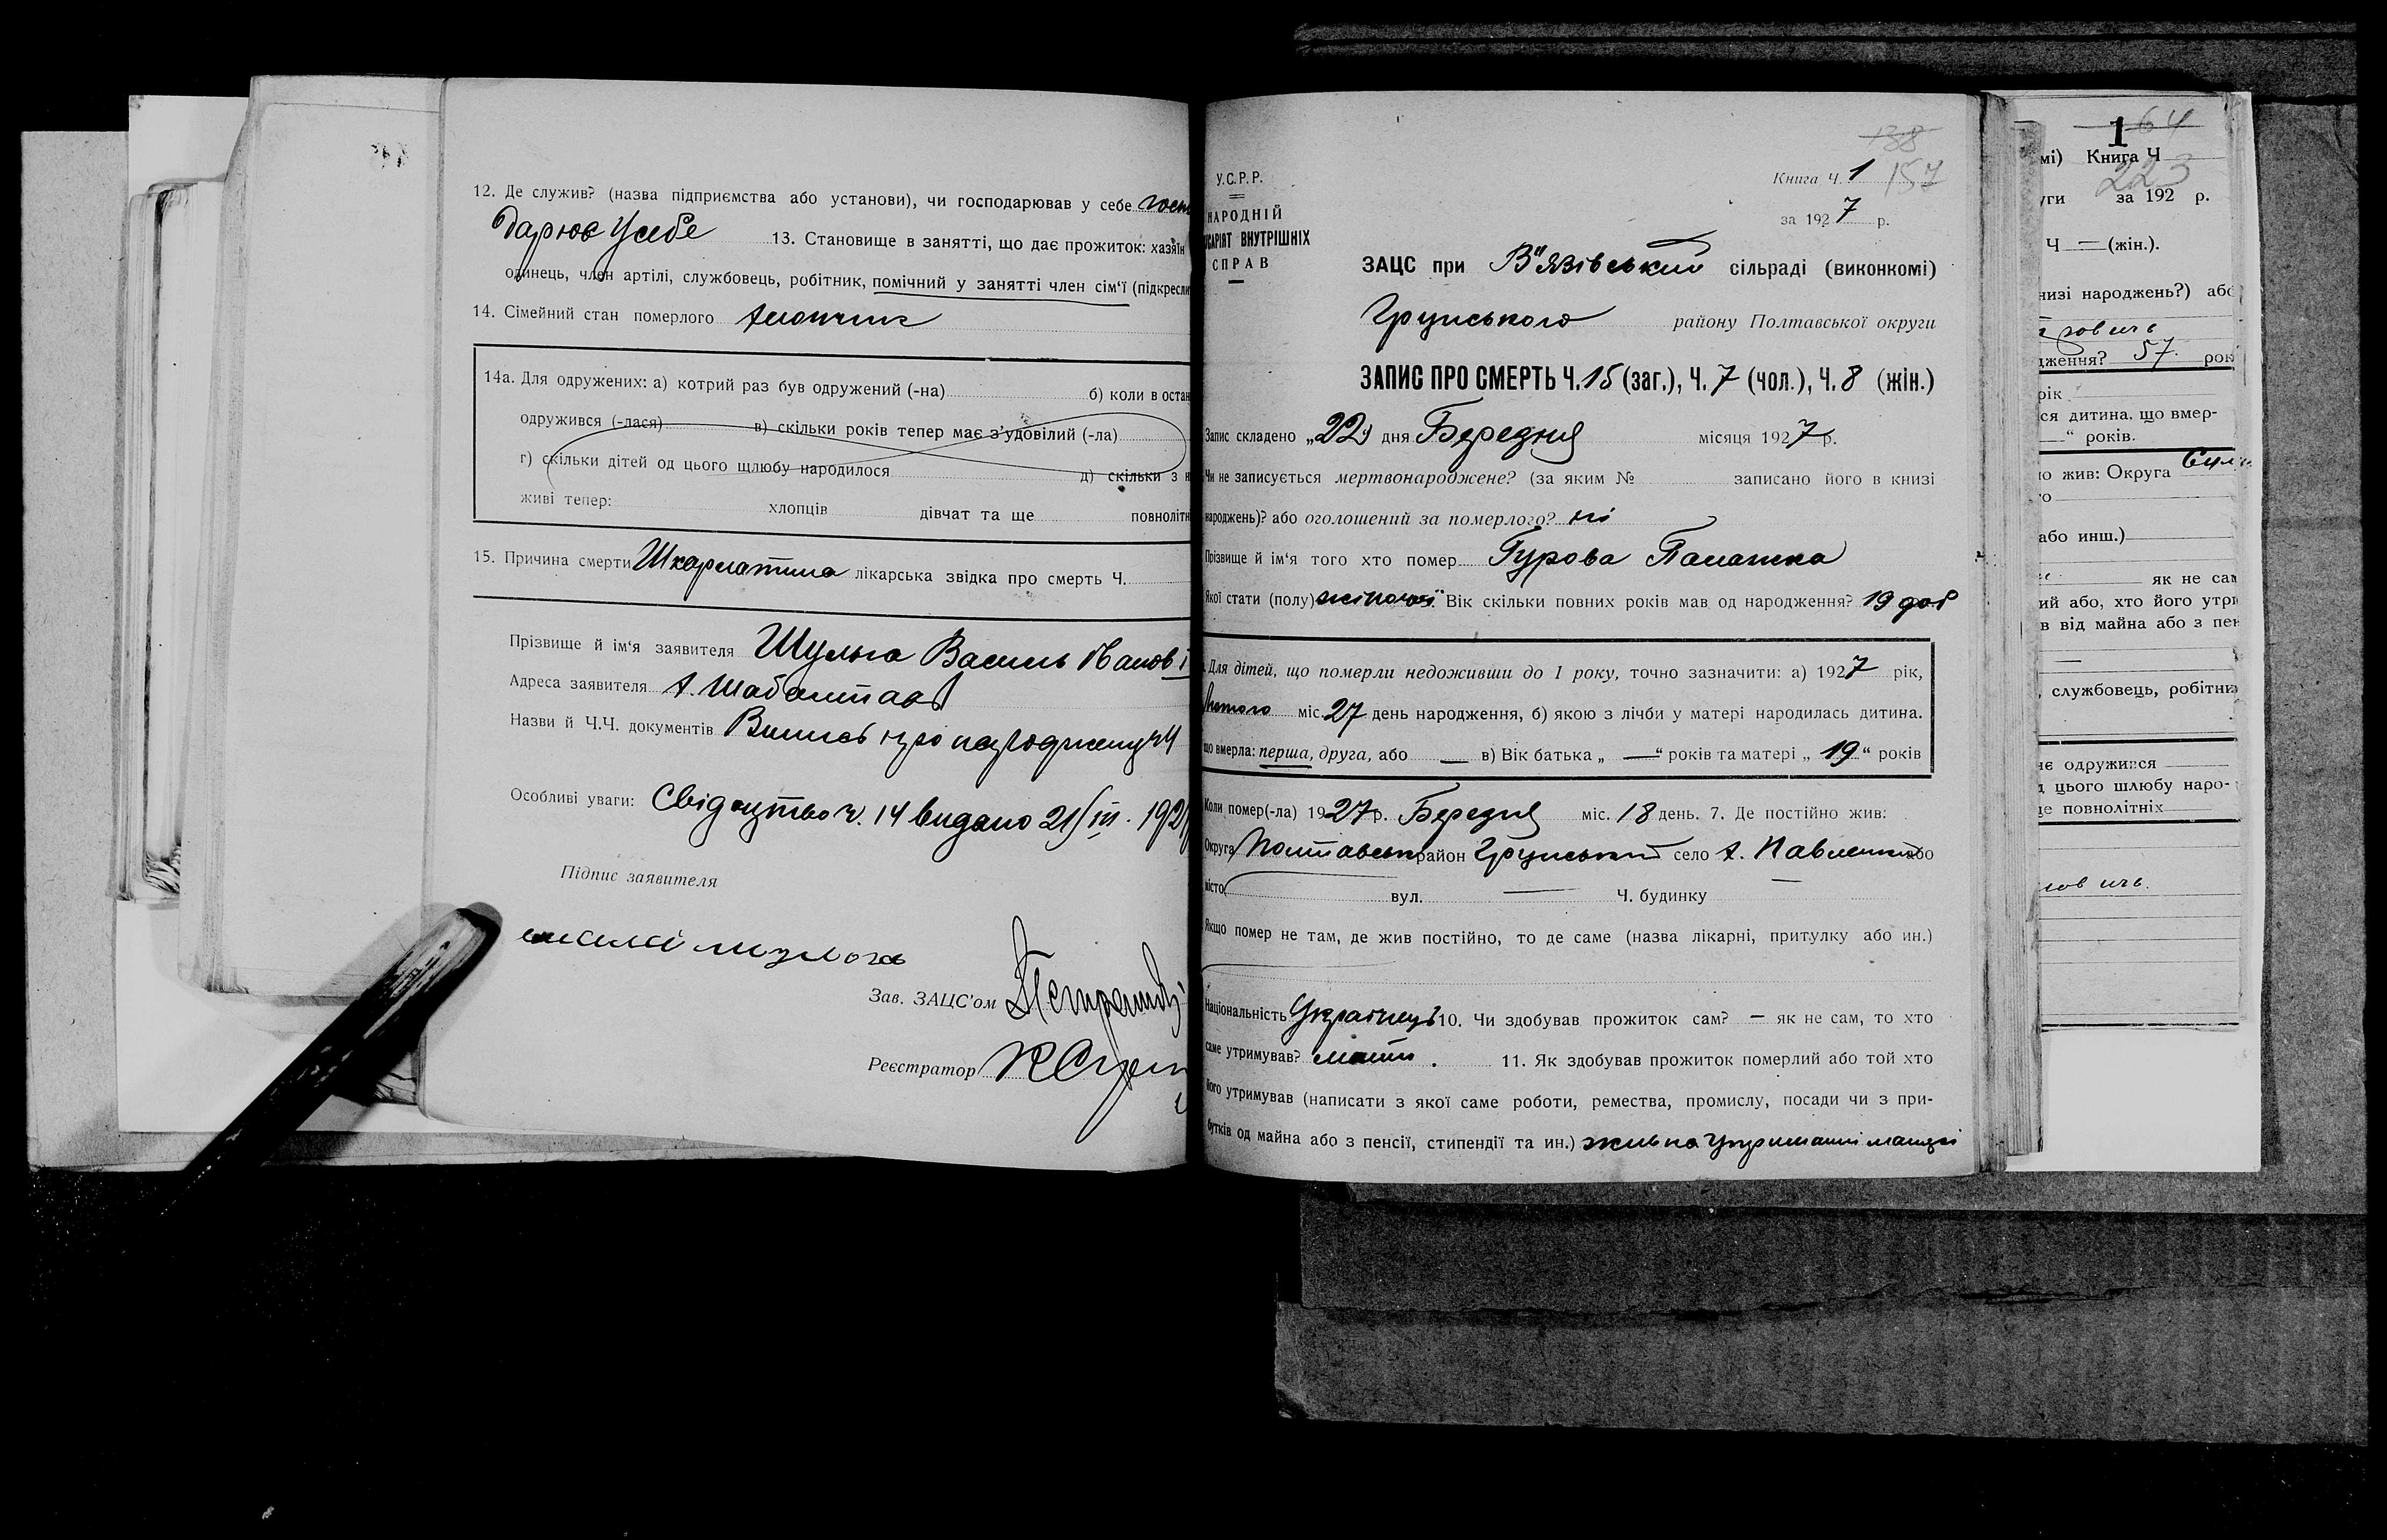 12. Де служив? (назва підприємства або установи), чи господарював у себе госп
дарює у себе 13. Становище в занятті, що дає прожиток: хазяїн
одинець, член артілі, службовець, робітник, помічний у занятті член сім'ї (підкресли
14. Сімейний стан померлого хлопчик
14а. Для одружених: а) котрий раз був одружений (-на) б) коли в остан
одружився (-лася) в) скільки років тепер має з'удовілий (-ла)
г) скільки дітей од цього щлюбу народилося д) скільки з н
живі тепер: хлопців дівчат та ще повнолітн
15. Причина смерти Шкарлатина лікарська звідка про смерть Ч.
Прізвище й ім'я заявителя Шульга Василь Іванові
Адреса заявителя х.
Назви й Ч.Ч. документів Випись про народження ч 4
Особливі уваги: Свідоцтво ч. 14 видано 21/III. 192
Підпис заявителя
Зав. ЗАЦС'ом
Реєстратор
У.С.Р.Р.
НАРОДНІЙ
САРІЯТ ВНУТРІШНІХ
СПРАВ
138
Книга Ч. 1 157
за 1927 р.
ЗАЦС при В"язівський сільраді (виконкомі)
Грунського району Полтавської округи
ЗАПИС ПРО СМЕРТЬ Ч. 15 (заг.), Ч. 7 (чол.), Ч. 8 (жін.)
Запис складено „22" дня Березня місяця 1927 р.
Чи не записується мертвонароджене? (за яким № записано його в книзі
народжень)? або оголошений за померлого? ні
Прізвище й ім'я того хто помер Гурова Палажка
Якої стати (полу) жіночої Вік скільки повних років мав од народження? 19 доб
Для дітей, що померли недоживши до 1 року, точно зазначити: а) 1927 рік,
Лютого міс. 27 день народження, б) якою з лічби у матері народилась дитина.
що вмерла: перша, друга, або — в) Вік батька „ — " років та матері „ 19 " років
Коли помер(-ла) 1927 р. Березня міс. 18 день. 7. Де постійно жив:
Округа Полтавськ район Грунський село х. Павленки або
місто вул. — Ч. будинку —
Якщо помер не там, де жив постійно, то де саме (назва лікарні, притулку або ин.)
Національність Українець 10. Чи здобував прожиток сам? — як не сам, то хто
саме утримував? мати. 11. Як здобував прожиток померлий або той хто
його утримував (написати з якої саме роботи, ремества, промислу, посади чи з при-
бутків од майна або з пенсії, стипендії та ин.) жив на утриманні матері
1 64
мі) Книга Ч
223
уги за 192 р.
Ч — (жін.).
низі народжень?) або
дження? 57 рок
рік
ся дитина, що вмер-
—" років.
о жив: Округа
го
або инш.)
як не сам
ий або, хто його утри
в від майна або з пен
—
, службовець, робітник
не одружився
д цього шлюбу наро-
ще повнолітніх